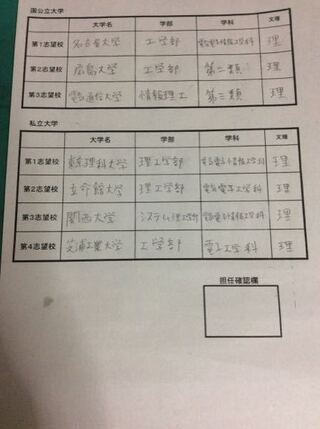 国公立大学
大学名 学部 学科 文理
第1志望校 名古屋大学 工学部 電気電子情報工学科 理
第2志望校 広島大学 工学部 第二類 理
第3志望校 電気通信大学 情報理工 第三類 理
私立大学
大学名 学部 学科 文理
第1志望校 東京理科大学 理工学部 電気電子情報工学科 理
第2志望校 立命館大学 理工学部 電気電子工学科 理
第3志望校 関西大学 システム理工学部 電気電子情報工学科 理
第4志望校 芝浦工業大学 工学部 電子工学科 理
担任確認欄